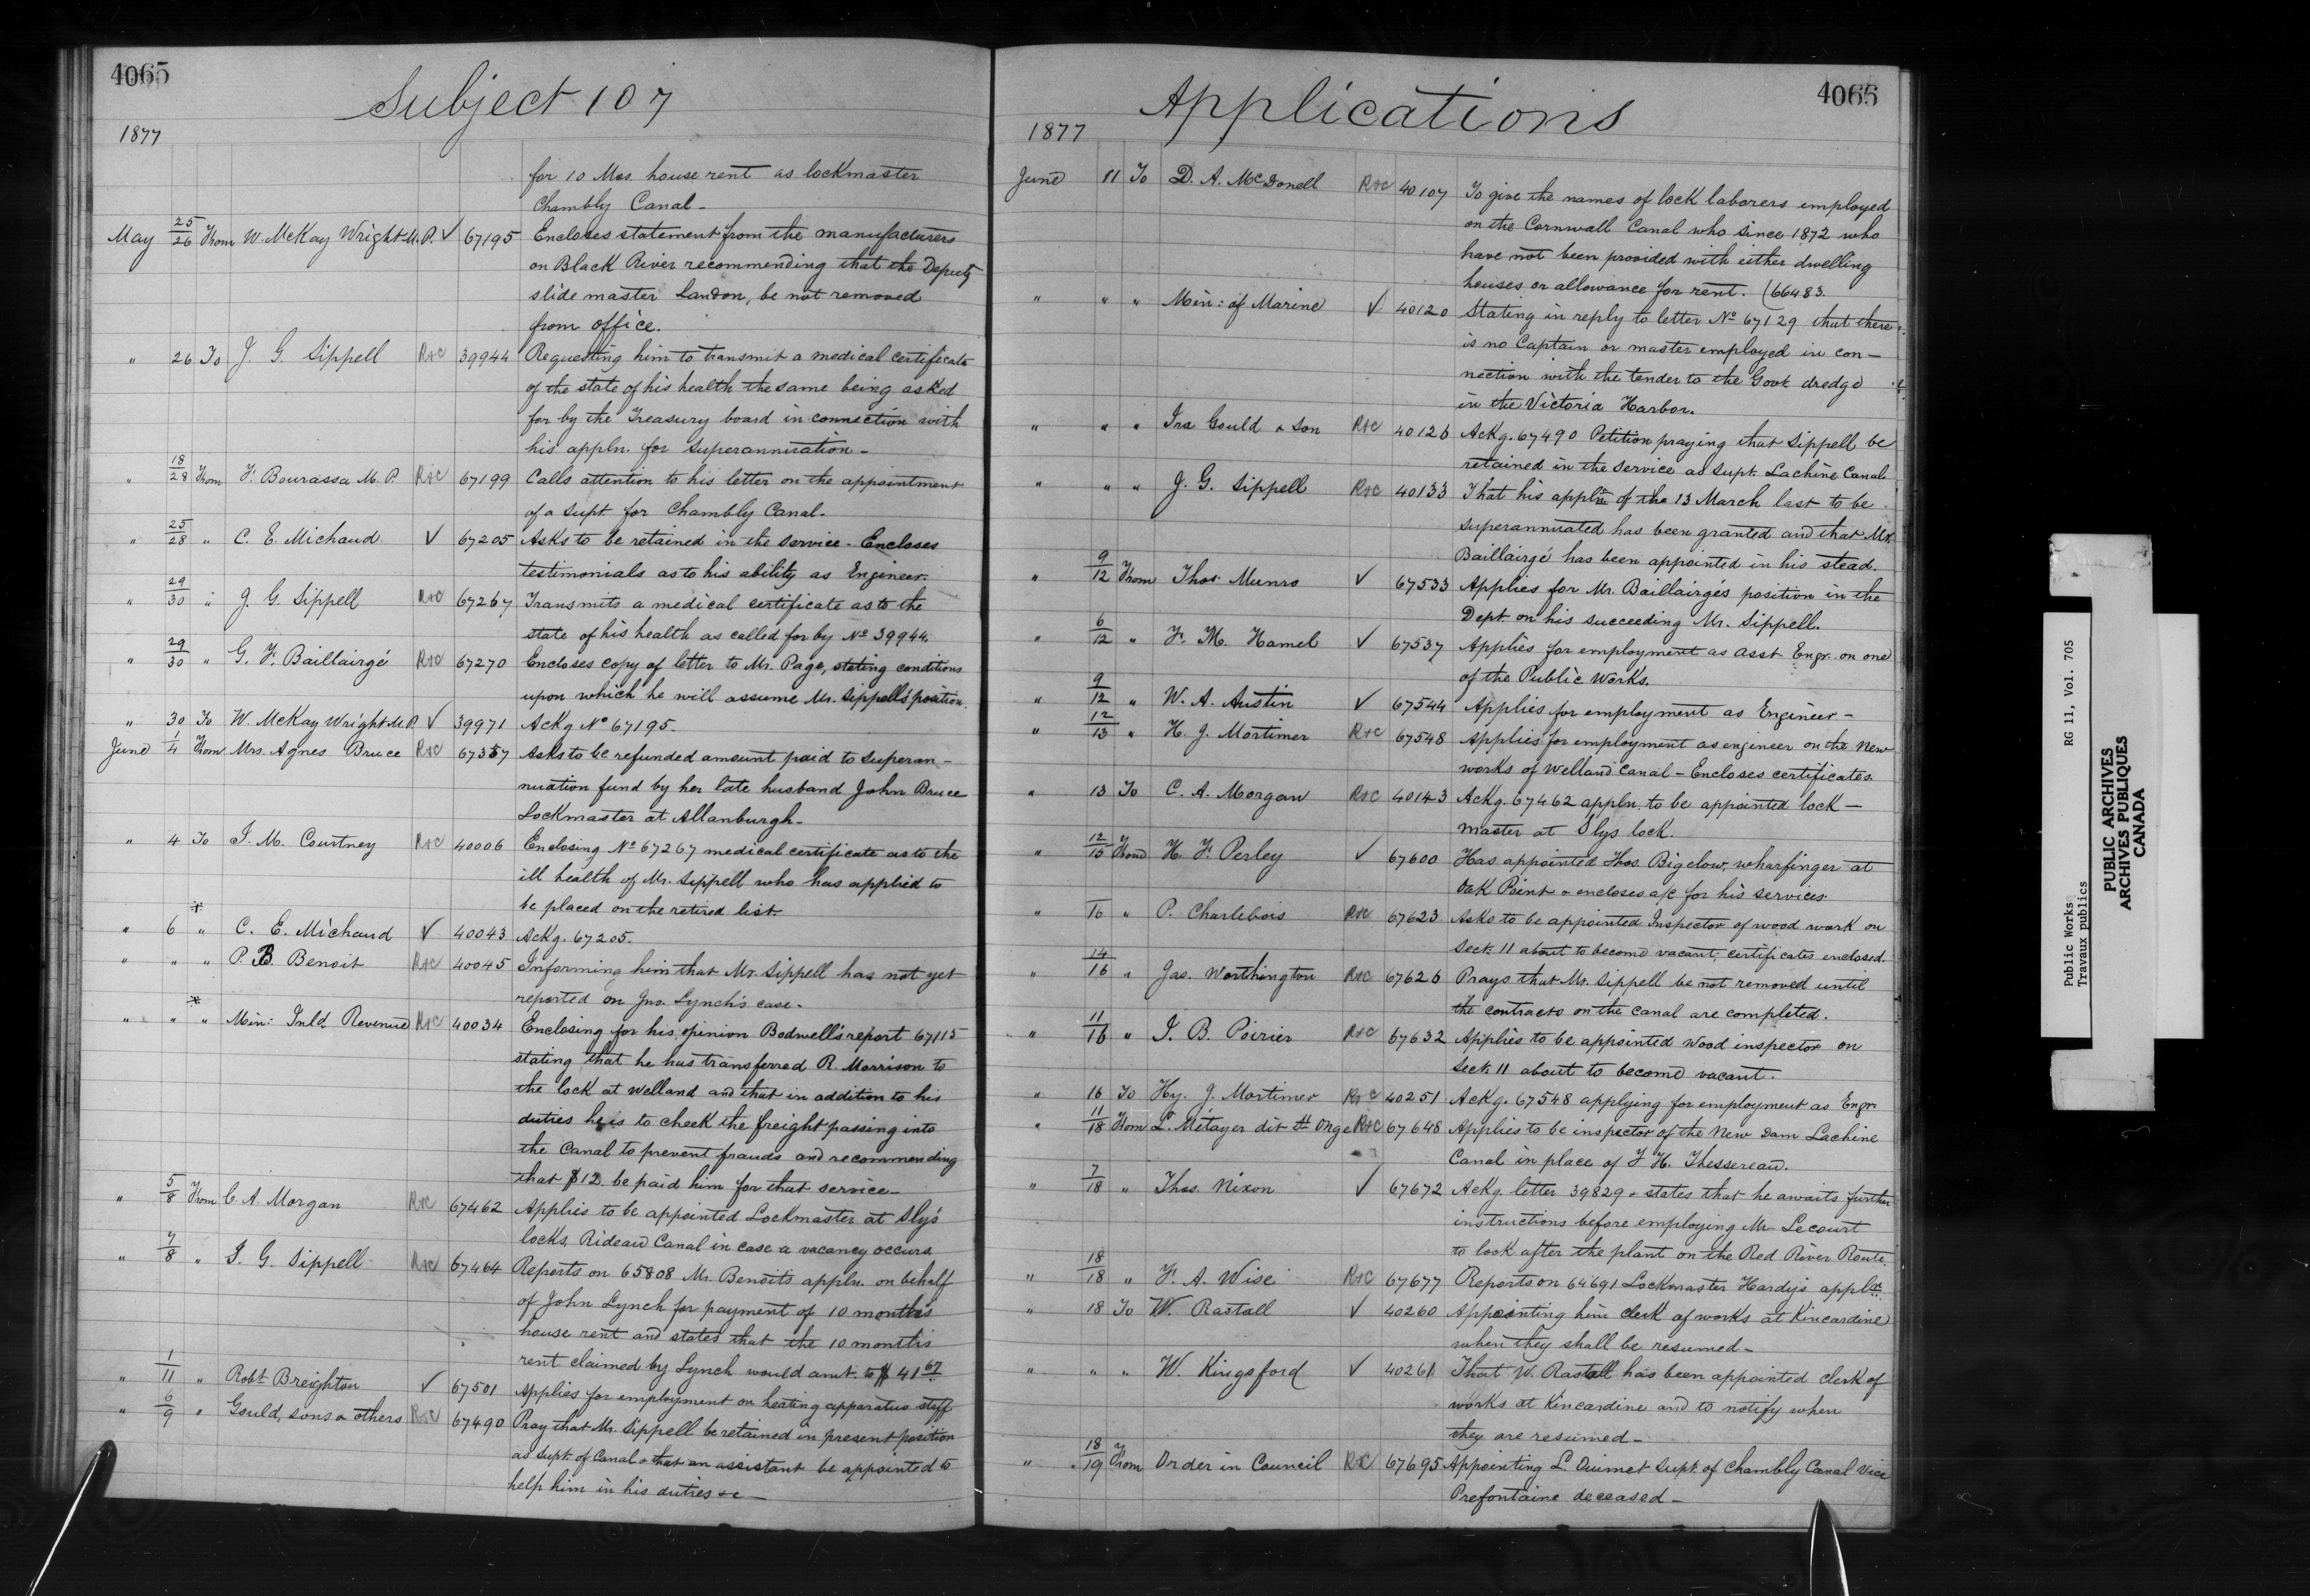 4065
Subject 107
1877
for 10 Mos. house rent as lockmaster
Chambly Canal -
May 25/26 From W. McKay Wright M.P. ✓ 67195 Encloses statement from the manufacturers
on Black River recommending that the Deputy
slide master Landon, be not removed
from office.
" 26 To J. G. Sippell R&C 39944 Requesting him to transmit a medical certificate
of the state of his health the same being asked
for by the Treasury board in connection with
his appln. for superannuation -
" 18/28 From F. Bourassa M. P. R&C 67199 Calls attention to his letter on the appointment
of a Supt. for Chambly Canal -
" 25/28 " C. E. Michaud ✓ 67205 Asks to be retained in the service - Encloses
testimonials as to his ability as Engineer.
" 29/30 " J. G. Sippell R&C 67267 Transmits a medical certificate as to the
state of his health as called for by No 39944.
" 29/30 " G. F. Baillairgé R&C 67270 Encloses copy of letter to Mr. Page, stating conditions
upon which he will assume Mr. Sippell's position.
" 30 To W. McKay Wright M.P. ✓ 39971 Ackg No 67195 -
June 1/4 From Mrs. Agnes Bruce R&C 67357 Asks to be refunded amount paid to Superan-
nuation fund by her late husband John Bruce
Lockmaster at Allanburgh -
" 4 To J. M. Courtney R&C 40006 Enclosing No 67267 medical certificate as to the
ill health of Mr. Sippell who has applied to
be placed on the retired list -
" 6 " C. E. Michaud ✓ 40043 Ackg. 67205.
" " " P. B. Benoit R&C 40045 Informing him that Mr. Sippell has not yet
reported on Jno. Lynch's case -
" " " Min: Inld. Revenue R&C 40034 Enclosing for his opinion Bodwell's report 67115
stating that he has transferred R. Morrison to
the lock at Welland and that in addition to his
duties he is to check the freight passing into
the Canal to prevent frauds and recommending
that $12 be paid him for that service -
" 5/8 From C. A. Morgan R&C 67462 Applies to be appointed Lockmaster at Sly's
locks, Rideau Canal in case a vacancy occurs.
" 7/8 " J. G. Sippell R&C 67464 Reports on 65808 Mr. Benoit's appln. on behalf
of John Lynch for payment of 10 month's
house rent and states that the 10 months
rent claimed by Lynch would amt. to $41 67
" 1/11 " Robt Breighton ✓ 67501 Applies for employment on heating apparatus staff
" 6/9 " Gould, sons & others R&C 67490 Pray that Mr. Sippell be retained in present position
as Supt. of Canal & that an assistant be appointed to
help him in his duties &c -
4066
Applications
1877
June 11 To D. A. McDonell R&C 40107 To give the names of lock laborers employed
on the Cornwall Canal who since 1872 who
have not been provided with either dwelling
houses or allowance for rent. (66483.
" " " Min: of Marine ✓ 40120 Stating in reply to letter No 67129 that there
is no Captain or master employed in con-
nection with the tender to the Govt. dredge
in the Victoria Harbor.
" " " Ira Gould & Son R&C 40126 Ackg. 67490 Petition praying that Sippell be
retained in the service as Supt. Lachine Canal.
" " " J. G. Sippell R&C 40133 That his appln of the 13 March last to be
superannuated has been granted and that Mr.
Baillairgé has been appointed in his stead.
" 9/12 From Thos. Munro ✓ 67533 Applies for Mr. Baillairgé's position in the
Dept. on his succeeding Mr. Sippell.
" 6/12 " F. M. Hamel ✓ 67537 Applies for employment as Asst Engr. on one
of the Public Works.
" 9/12 " W. A. Austin ✓ 67544 Applies for employment as Engineer -
" 12/13 " H. J. Mortimer R&C 67548 Applies for employment as engineer on the New
works of Welland Canal - Encloses certificates.
" 13 To C. A. Morgan R&C 40143 Ackg. 67462 appln. to be appointed lock-
master at Slys lock.
" 12/15 From H. F. Perley ✓ 67600 Has appointed Thos. Bigelow, wharfinger at
Oak Point & encloses a/c for his services.
" 16 " P. Charlebois R&C 67623 Asks to be appointed Inspector of wood work on
Sect. 11 about to become vacant: certificates enclosed.
" 14/16 " Jas. Worthington R&C 67626 Prays that Mr. Sippell be not removed until
the contracts on the canal are completed.
" 11/16 " J. B. Poirier R&C 67632 Applies to be appointed Wood inspector on
Sect. 11 about to become vacant.
" 16 To Hy. J. Mortimer R&C 40251 Ackg. 67548 applying for employment as Engr.
" 11/18 From L. Métayer dit St Onge R&C 67648 Applies to be inspector of the New Dam Lachine
Canal in place of F H. Thessereau.
" 7/18 " Thos. Nixon ✓ 67672 Ackg letter 39829 & states that he awaits further
instructions before employing Mr Lecourt
to look after the plant on the Red River Route.
" 18/18 " F. A. Wise R&C 67677 Reports on 64691 Lockmaster Hardy's appln.
" 18 To W. Rastall ✓ 40260 Appointing him clerk of works at Kincardine
when they shall be resumed -
" " " W. Kingsford ✓ 40261 That W. Rastall has been appointed clerk of
works at Kincardine and to notify when
they are resumed -
" 18/19 From Order in Council R&C 67695 Appointing L. Ouimet Supt. of Chambly Canal vice
Prefontaine deceased -
Public Works: RG 11, Vol. 705
Travaux publics
PUBLIC ARCHIVES
ARCHIVES PUBLIQUES
CANADA